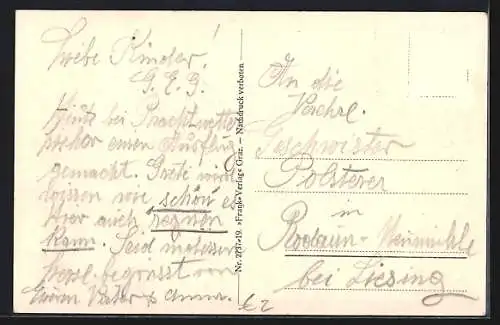 Liebe Kinder!
G. E. G.
Heute bei Prachtwetter
einen Ausflug
gemacht. Grete wird
wissen wie schön es
hier auch regnen
kann. Seid
begrüsst von
Eurem Vater &
Nr. 2737•19. »Frank«Verlag, Graz. — Nachdruck verboten
An die
Verehrl.
Geschwister
Polsterer
in
Rodaun-Neumühle
bei Liesing
€ 2